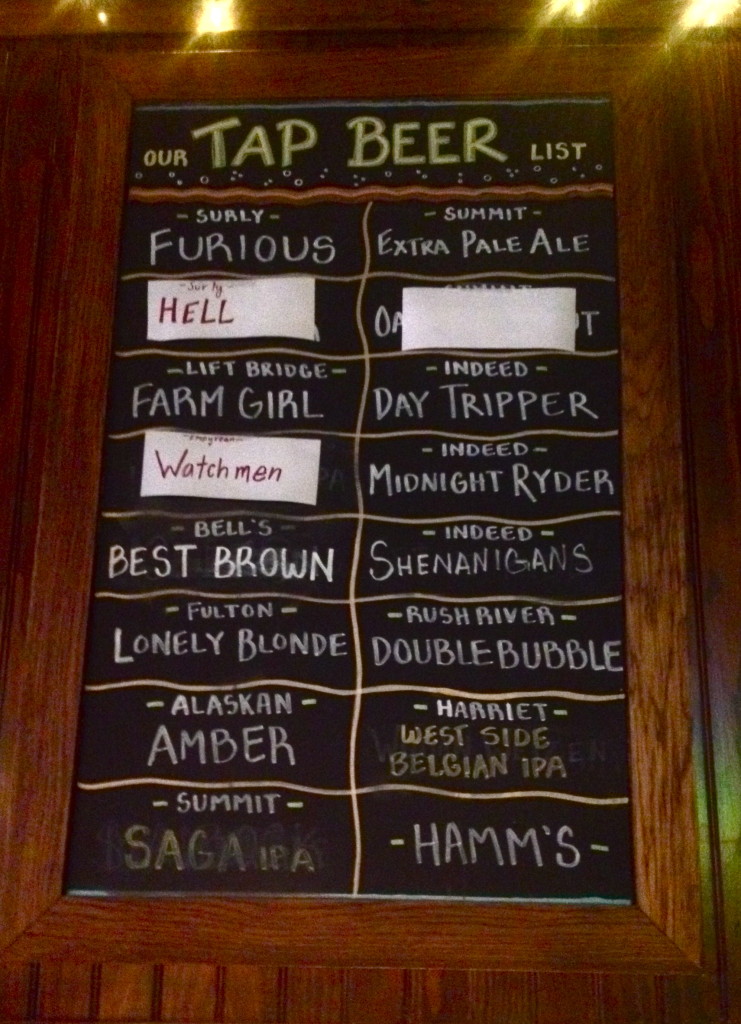 OUR TAP BEER LIST
- SURLY -
FURIOUS
- Surly -
HELL
- LIFT BRIDGE -
FARM GIRL
Watchmen
- BELL'S -
BEST BROWN
- FULTON -
LONELY BLONDE
- ALASKAN -
AMBER
- SUMMIT -
SAGA IPA
- SUMMIT -
EXTRA PALE ALE
- SUMMIT -
- INDEED -
DAY TRIPPER
- INDEED -
MIDNIGHT RYDER
- INDEED -
SHENANIGANS
- RUSH RIVER -
DOUBLE BUBBLE
- HARRIET -
WEST SIDE
BELGIAN IPA
- HAMM'S -